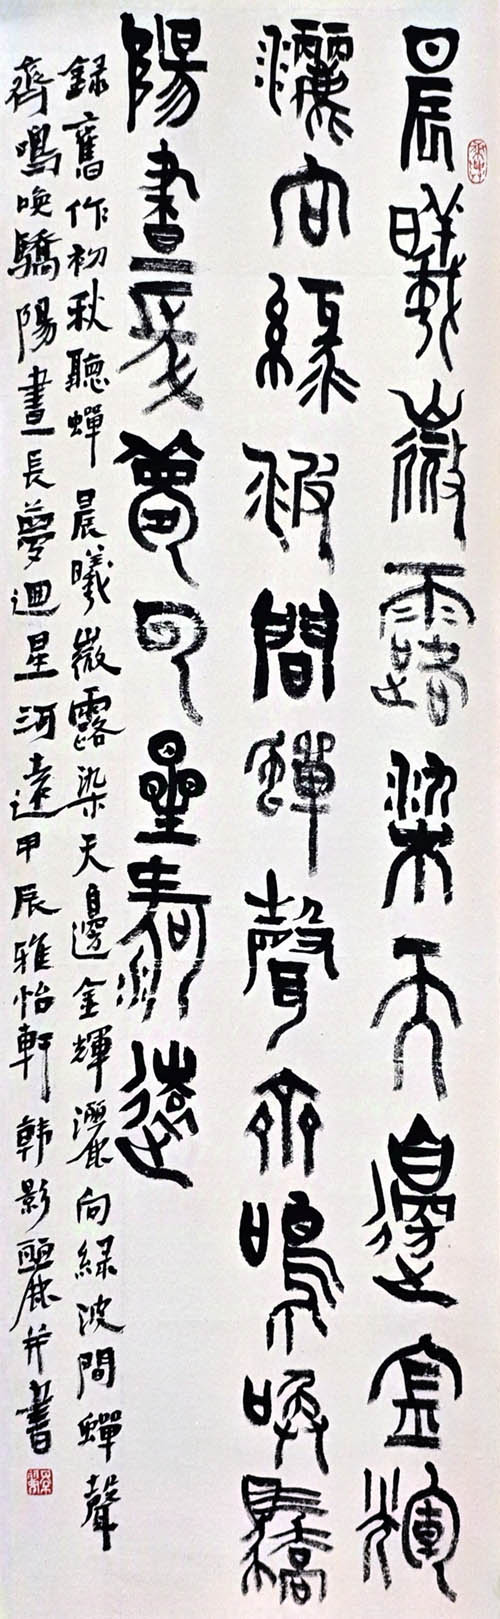 晨曦微露染天邊金輝
灑向綠波間蟬聲齊鳴喚驕
陽晝長夢迴星河遠
錄舊作初秋聽蟬 晨曦微露染天邊金輝灑向綠波間蟬聲
齊鳴喚驕陽晝長夢迴星河遠甲辰雅怡軒韓影麗并書